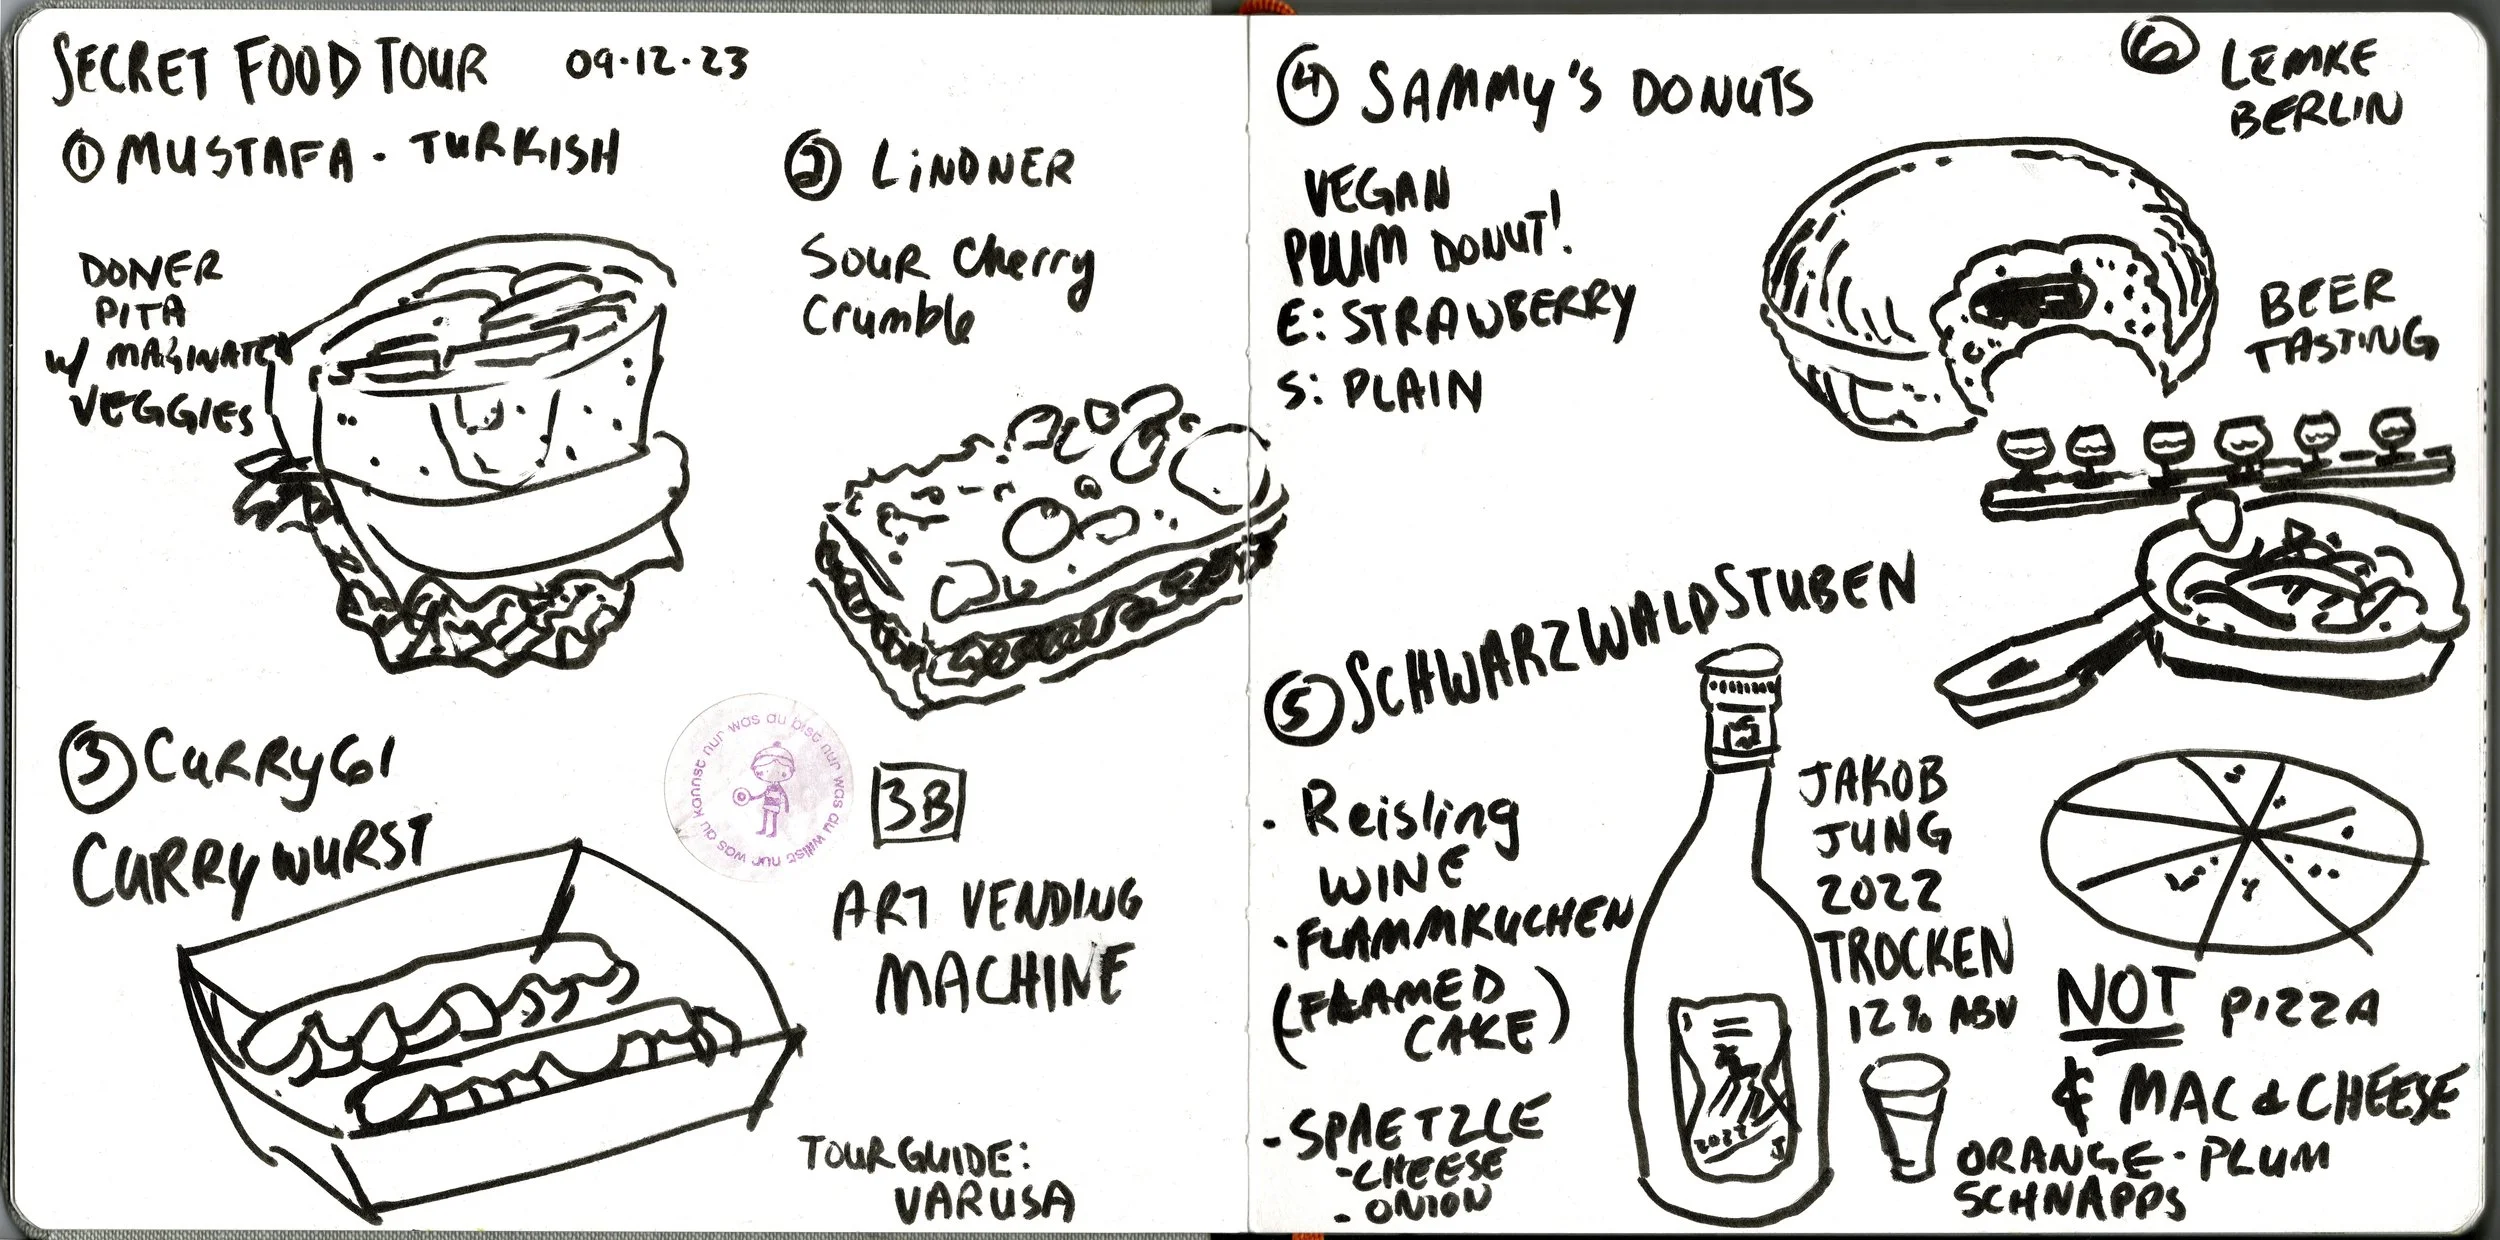 SECRET FOOD TOUR 09·12·23
① MUSTAFA - TURKISH
DONER
PITA
W/ MARINATED
VEGGIES
② LINDNER
Sour Cherry
Crumble
③ CURRY61
CURRYWURST
kannst nur was du bist nur was du willst nur was du
3B
ART VENDING
MACHINE
TOUR GUIDE:
VARUSA
④ SAMMY'S DONUTS
VEGAN
PLUM DONUT!
E: STRAWBERRY
S: PLAIN
⑤ SCHWARZWALDSTUBEN
· Reisling
WINE
· FLAMMKUCHEN
(FLAMED
CAKE)
- SPAETZLE
- CHEESE
- ONION
2022
JAKOB
JUNG
2022
TROCKEN
12% ABV
NOT PIZZA
& MAC & CHEESE
ORANGE-PLUM
SCHNAPPS
⑥ LEMKE
BERLIN
BEER
TASTING